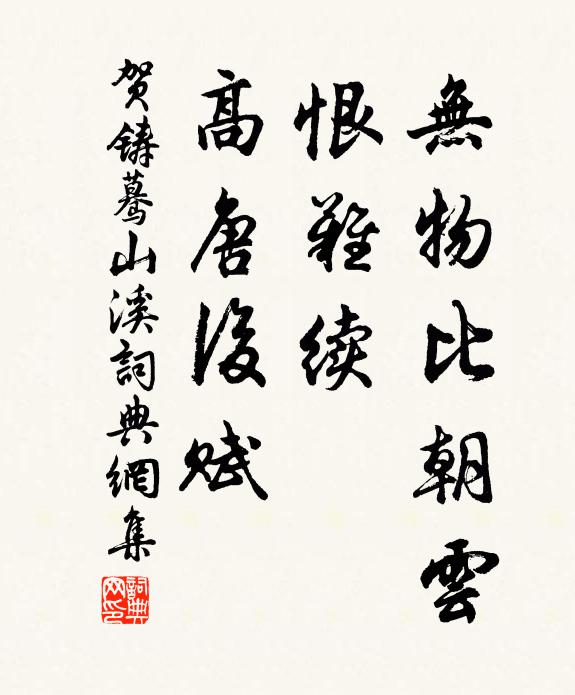 無物比朝雲
恨難续
高唐後賦
贺鑄蓦山溪詞典網集
詞典
网印